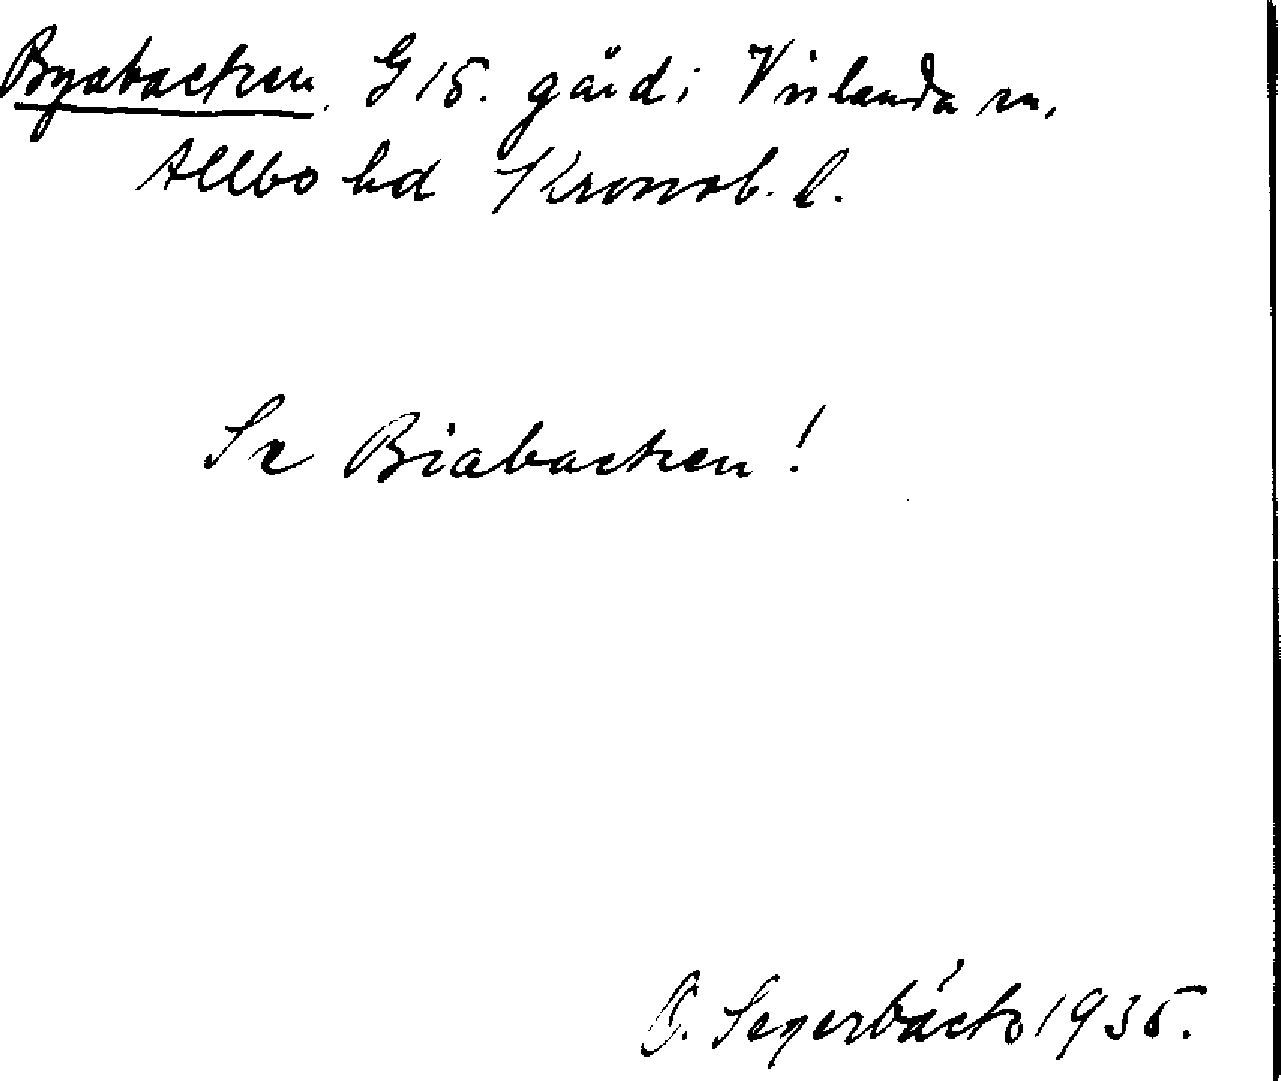 Byabacken. G 15. gård i Virlanda sn,
Allbo hd Kronob. l.
Se Biabacken!
O. Segerbäck 1935.